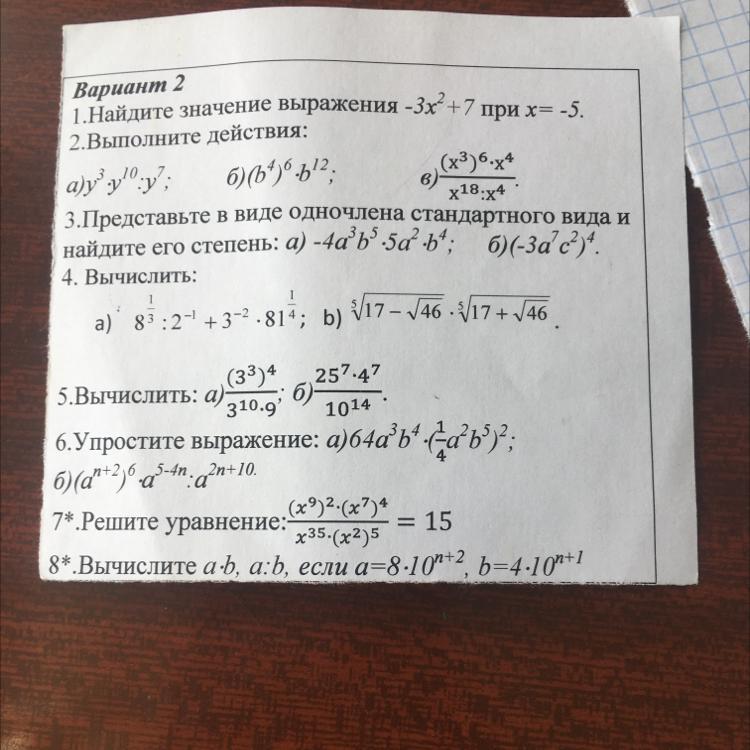 Вариант 2
1.Найдите значение выражения -3x²+7 при x= -5.
2.Выполните действия:
а)y³·y¹⁰:y⁷; б)(b⁴)⁶·b¹²; в)((x³)⁶·x⁴)/(x¹⁸:x⁴).
3.Представьте в виде одночлена стандартного вида и
найдите его степень: а) -4a³b⁵·5a²·b⁴; б)(-3a⁷c²)⁴.
4. Вычислить:
a) 8^(1/3) : 2⁻¹ + 3⁻² · 81^(1/4); b) ⁵√(17 − √46) · ⁵√(17 + √46) .
5.Вычислить: а)(3³)⁴/(3¹⁰·9); б)(25⁷·4⁷)/10¹⁴.
6.Упростите выражение: а)64a³b⁴·(1/4 a²b⁵)²;
б)(aⁿ⁺²)⁶·a⁵⁻⁴ⁿ:a²ⁿ⁺¹⁰.
7*.Решите уравнение:((x⁹)²·(x⁷)⁴)/(x³⁵·(x²)⁵) = 15
8*.Вычислите a·b, a:b, если a=8·10ⁿ⁺², b=4·10ⁿ⁺¹